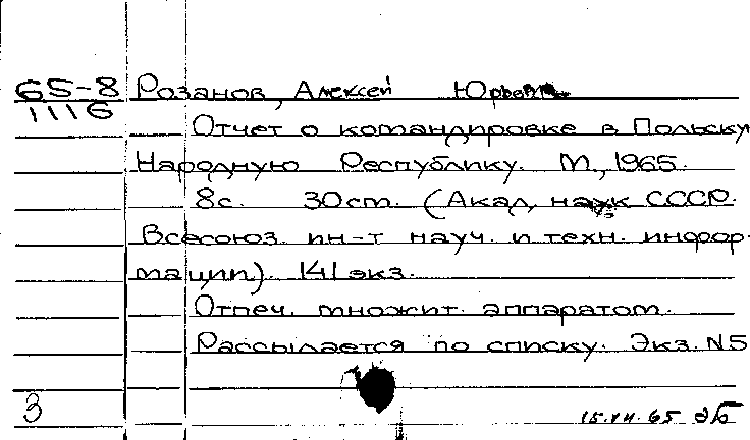 65-8 Розанов, Алексей Юрьевич
1116
Отчет о командировке в Польску
Народную Республику. М., 1965.
8с. 30 ст. (Акад. наук СССР.
Всесоюз. ин-т науч. и техн. инфор-
мации). 141 экз.
Отпеч. множит. аппаратом.
Рассылается по списку. Экз. N5
3
15.VII.65